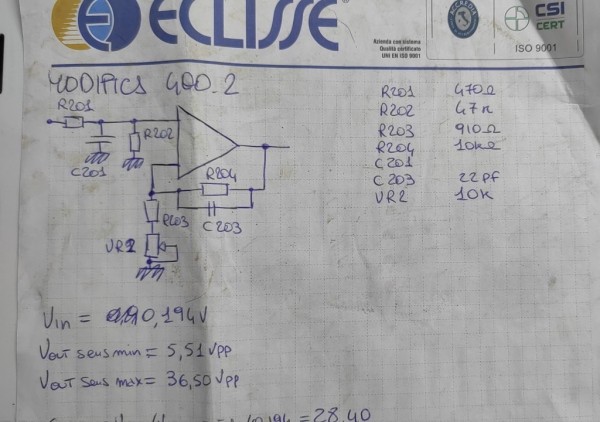 ECLISSE
Azienda con sistema
Qualità certificato
UNI EN ISO 9001
CSI
CERT
ISO 9001
MODIFICS 400.2
R201
R202
C201
R204
R203
C203
VR2
R201 470Ω
R202 47K
R203 910Ω
R204 10KΩ
C201
C203 22pf
VR2 10K
Vin = 0,194V
Vout sens min = 5,51Vpp
Vout sens max = 36,50Vpp
= 28,40